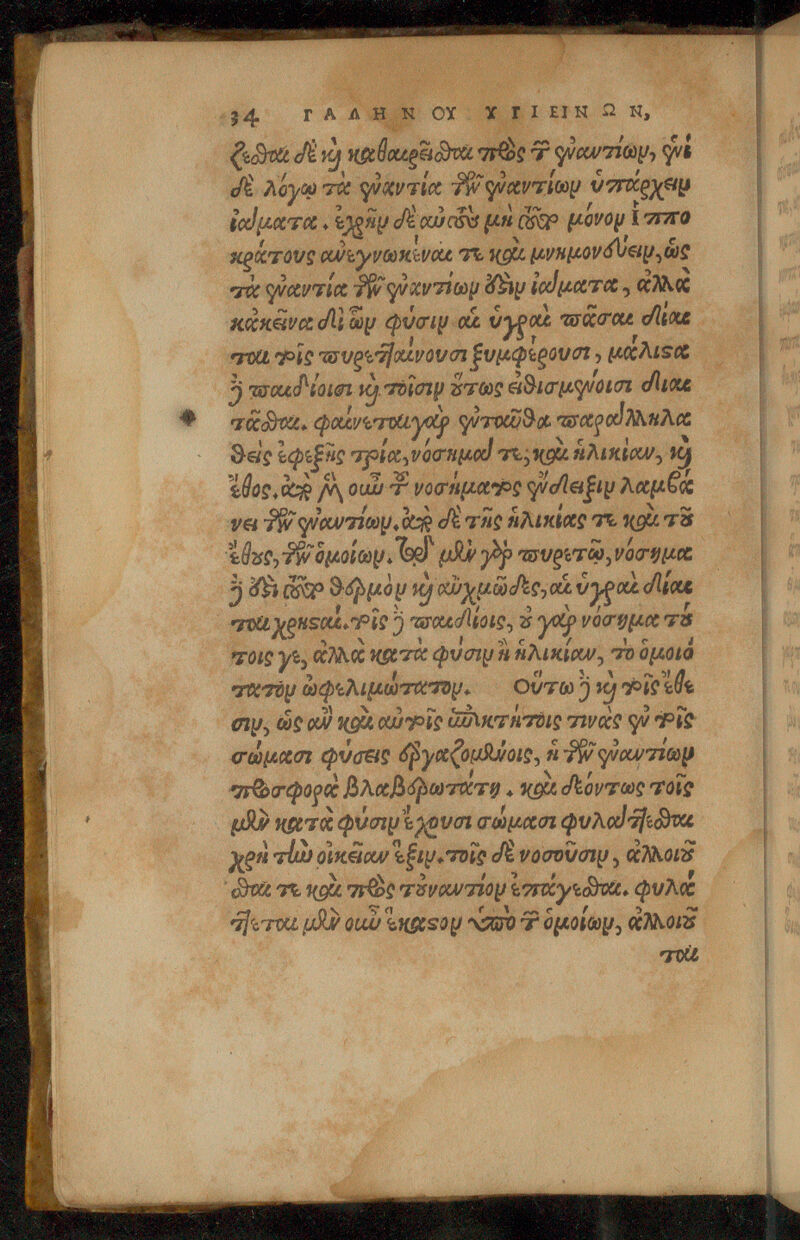 34 ΓΑΛΗΝΟΥ ΥΓΙΕΙΝΩΝ,
ζεσθαι δὲ καὶ καθαιρεῖσθαι πρὸς τῶν ἐναντίων, ἐνὶ
δὲ λόγῳ τὰ ἐναντία τῶν ἐναντίων ὑπάρχειν
ἰάματα. ἐχρῆν δὲ αὐτοὺς μὴ τοῦτο μόνον Ἱππο
κράτους ἀνεγνωκέναι τε καὶ μνημονεύειν, ὡς
τὰ ἐναντία τῶν ἐναντίων ἐστὶν ἰάματα, ἀλλὰ
κἀκεῖνα δι' ὧν φύσιν αἱ ὑγραὶ πᾶσαι δίαι
ται τοῖς πυρεταίνουσι ξυμφέρουσι, μάλιστα
δὲ παιδίοισι καὶ τοῖσιν οὕτως εἰθισμένοισι διαι
τᾶσθαι. φαίνεται γὰρ ἐνταῦθα παραλληλα
θεὶς ἐφεξῆς τρία, νόσημά τε, καὶ ἡλικίαν, καὶ
ἔθος, ἀπὸ μὲν οὖν τοῦ νοσήματος ἔνδειξιν λαμβά
νει τῶν ἐναντίων, ἀπὸ δὲ τῆς ἡλικίας τε καὶ τοῦ
ἔθους, τῶν ὁμοίων. ἐπὶ μὲν γὰρ πυρετῷ, νόσημα
δὲ ἐστι τοῦτο θερμὸν καὶ αὐχμῶδες, αἱ ὑγραὶ δίαι
ται χρησταί. τοῖς δὲ παιδίοις, οὐ γὰρ νόσημα τοῦ
τοις γε, ἀλλὰ κατὰ φύσιν ἡ ἡλικίαν, τὸ ὁμοιό
τατον ὠφελιμώτατον. Οὕτω δὲ καὶ τοῖς ἔθε
σιν, ὡς ἂν καὶ αὐτοῖς ἐπικτήτοις τινὰς ἐν τοῖς
σώμασι φύσεις ἐργαζομένοις, ἡ τῶν ἐναντίων
προσφορὰ βλαβερωτάτη. καὶ δεόντως τοῖς
μὲν κατὰ φύσιν ἔχουσι σώμασι φυλάττεσθαι
χρὴ τὴν οἰκείαν ἕξιν. τοῖς δὲ νοσοῦσιν, ἀλλοιοῦ
σθαι τε καὶ πρὸς τοὐναντίον ἐπάγεσθαι. φυλά
ττεται μὲν οὖν ἕκαστον ὑπὸ τῶν ὁμοίων, ἀλλοιοῦ
ται